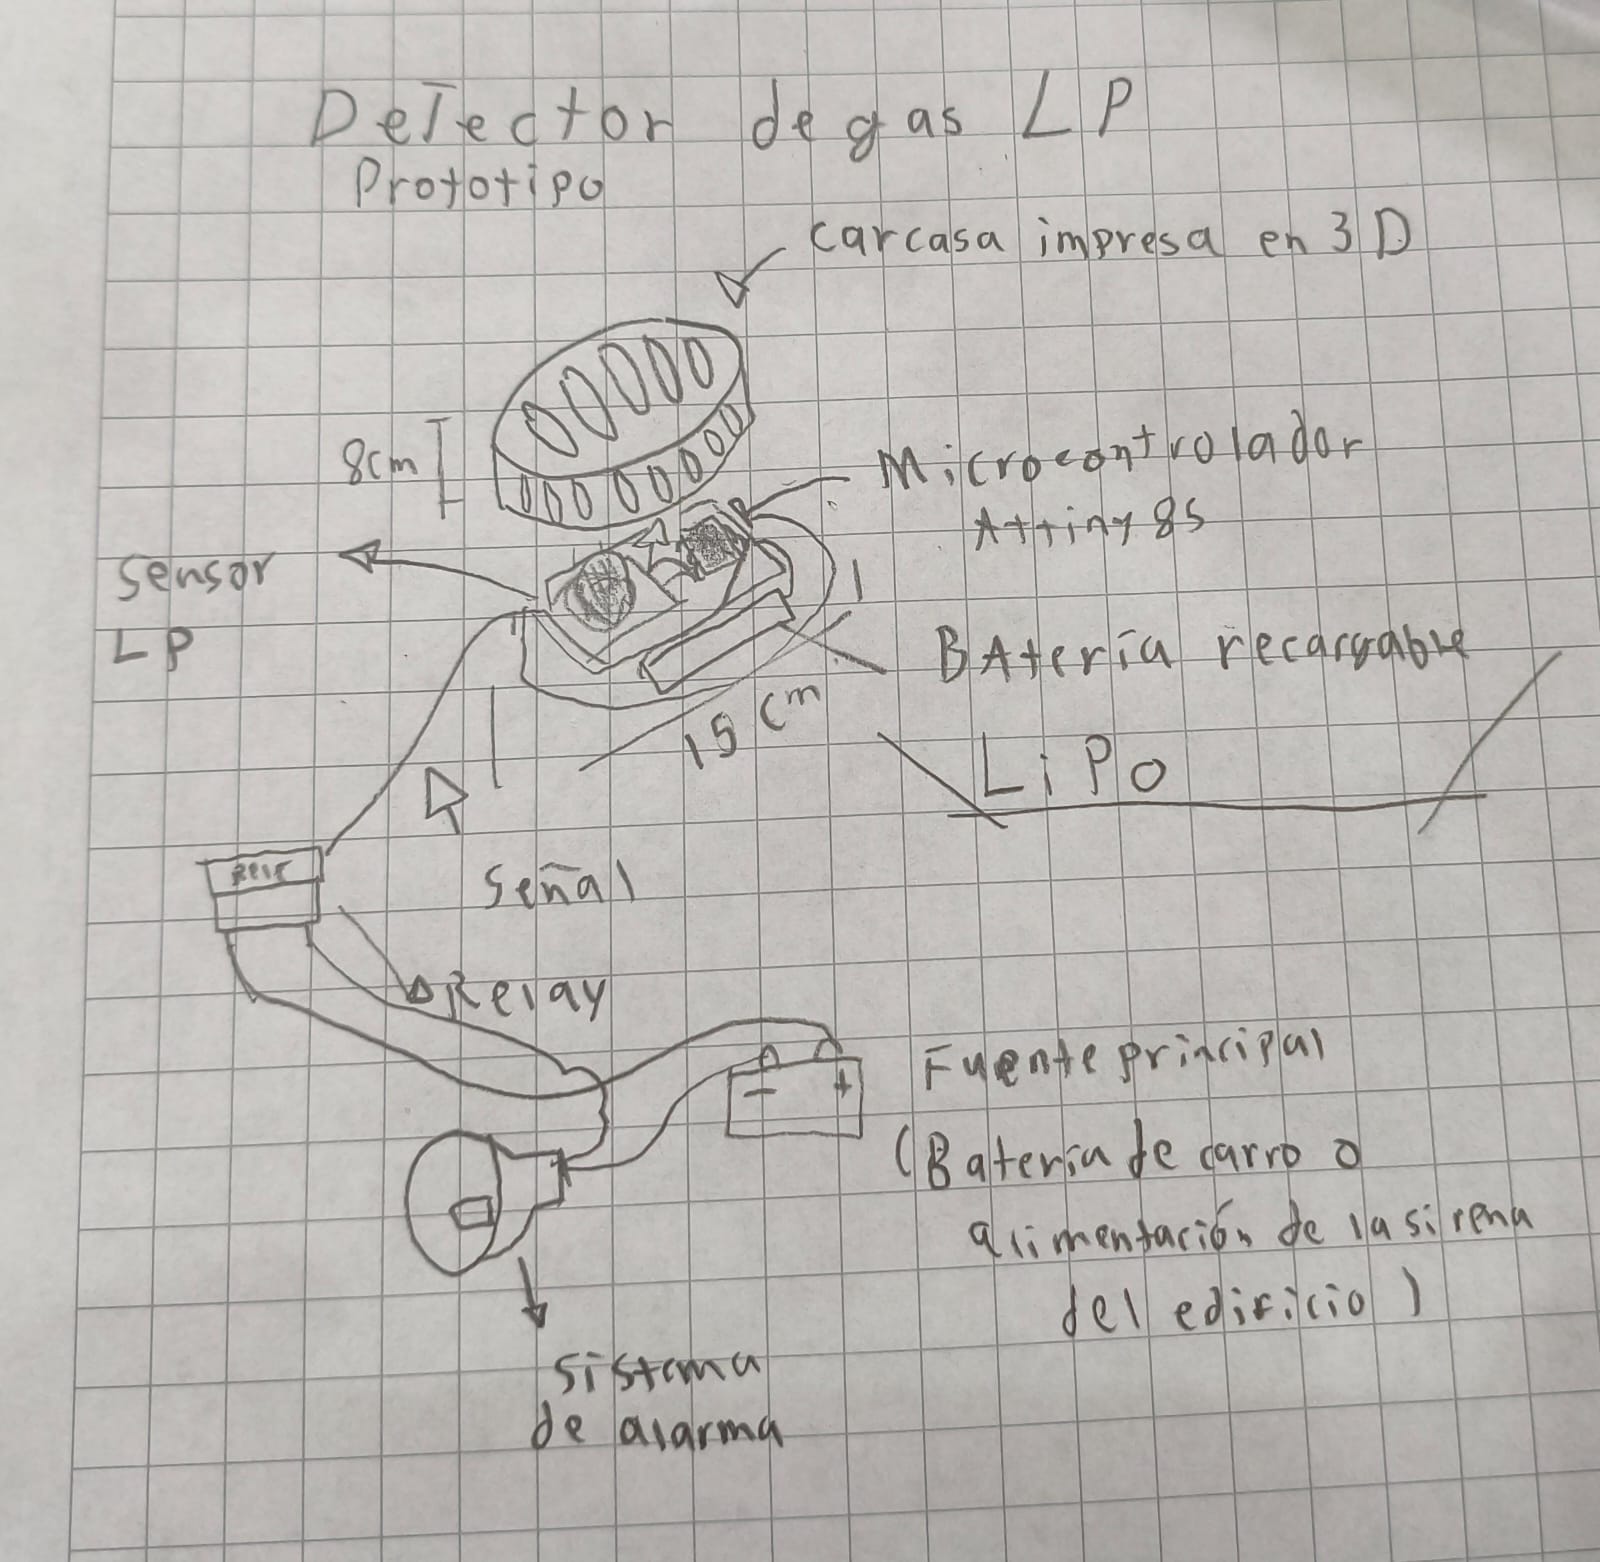 Detector de gas LP
Prototipo
carcasa impresa en 3D
8cm
Microcontrolador
Attiny 85
sensor
LP
BAtería recargable
15 cm
LiPo
señal
Relay
Fuente principal
(Batería de carro o
alimentación de la sirena
del edificio)
sistema
de alarma